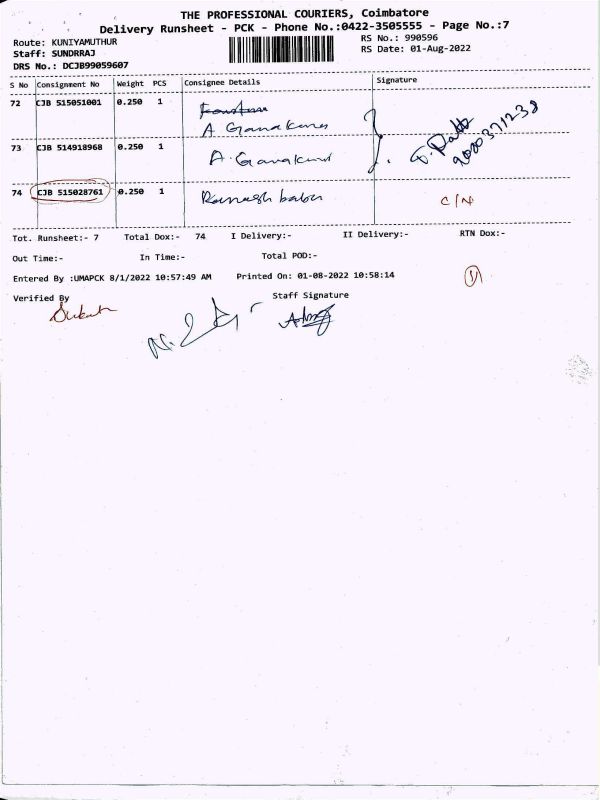 THE PROFESSIONAL COURIERS, Coimbatore
Delivery Runsheet - PCK - Phone No.:0422-3505555 - Page No.:7
Route: KUNIYAMUTHUR
RS No.: 990596
Staff: SUNDRRAJ
RS Date: 01-Aug-2022
DRS No.: DCJB99059607
S No Consignment No Weight PCS Consignee Details Signature
72 CJB 515051001 0.250 1
A
73 CJB 514918968 0.250 1 A.
74 CJB 515028761 0.250 1 Ramesh babu C/N
Tot. Runsheet:- 7 Total Dox:- 74 I Delivery:- II Delivery:- RTN Dox:-
Out Time:- In Time:- Total POD:-
Entered By :UMAPCK 8/1/2022 10:57:49 AM Printed On: 01-08-2022 10:58:14
Verified By Staff Signature